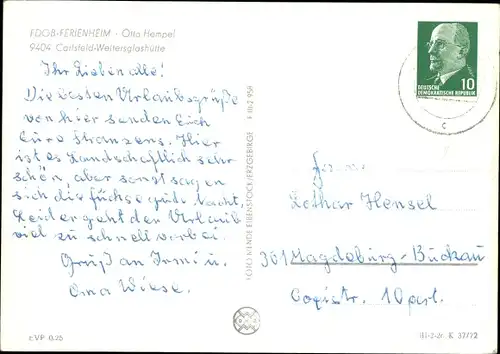 FDGB-FERIENHEIM - Otto Hempel
9404 Carlsfeld-Weitersglashütte
Ihr Lieben alle!
Die besten Urlaubsgrüße
von hier senden Euch
Eure Stranzens. Hier
ist es Landschaftlich sehr
schön, aber sonst sagen
sich die Füchse gute Nacht.
Leider geht der Urlaub
viel zu schnell vorbei.
Gruß an Irmi u.
Oma Wiese.
EVP 0.25
FOTO WENDE EIBENSTOCK (ERZGEBIRGE)
DEUTSCHE
DEMOKRATISCHE REPUBLIK
10
C
Lothar Hensel
301 Magdeburg-Buckau
Coquistr. 10 part.
III-2-2r. K 37/72